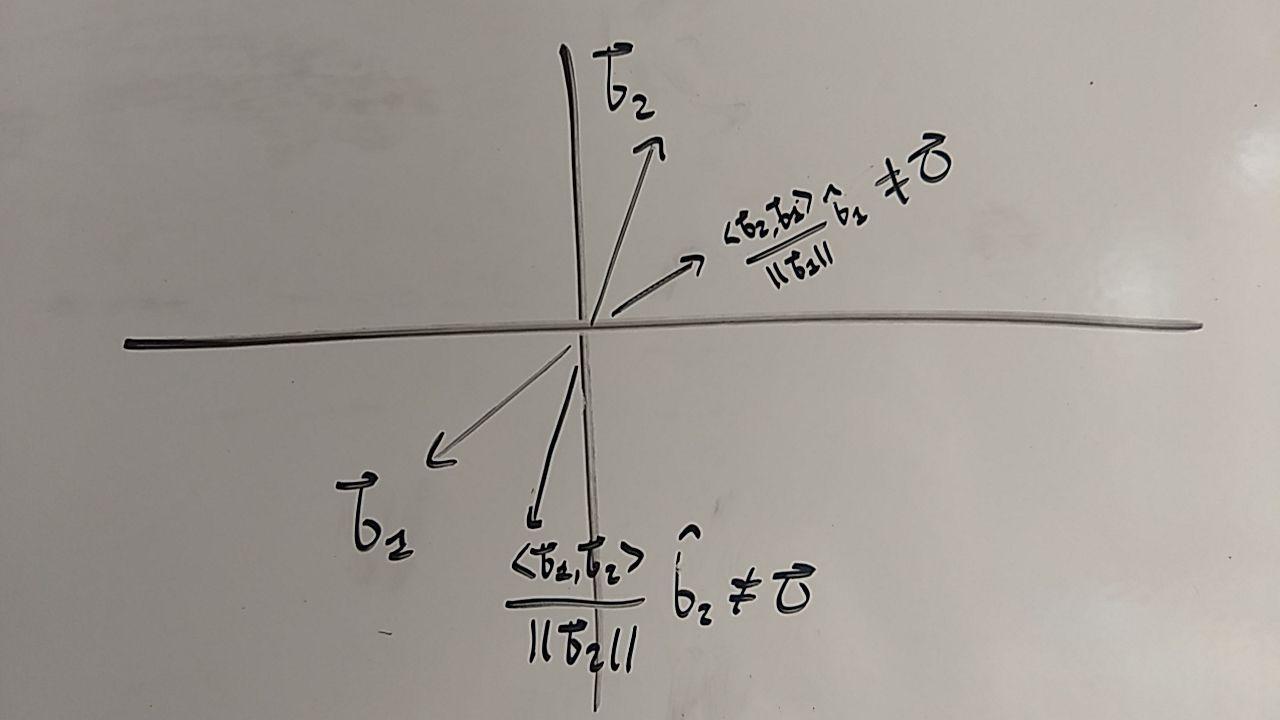 b⃗₂
<b⃗₂,b⃗₁> / ||b⃗₁|| b̂₁ ≠ 0⃗
b⃗₁
<b⃗₁,b⃗₂> / ||b⃗₂|| b̂₂ ≠ 0⃗